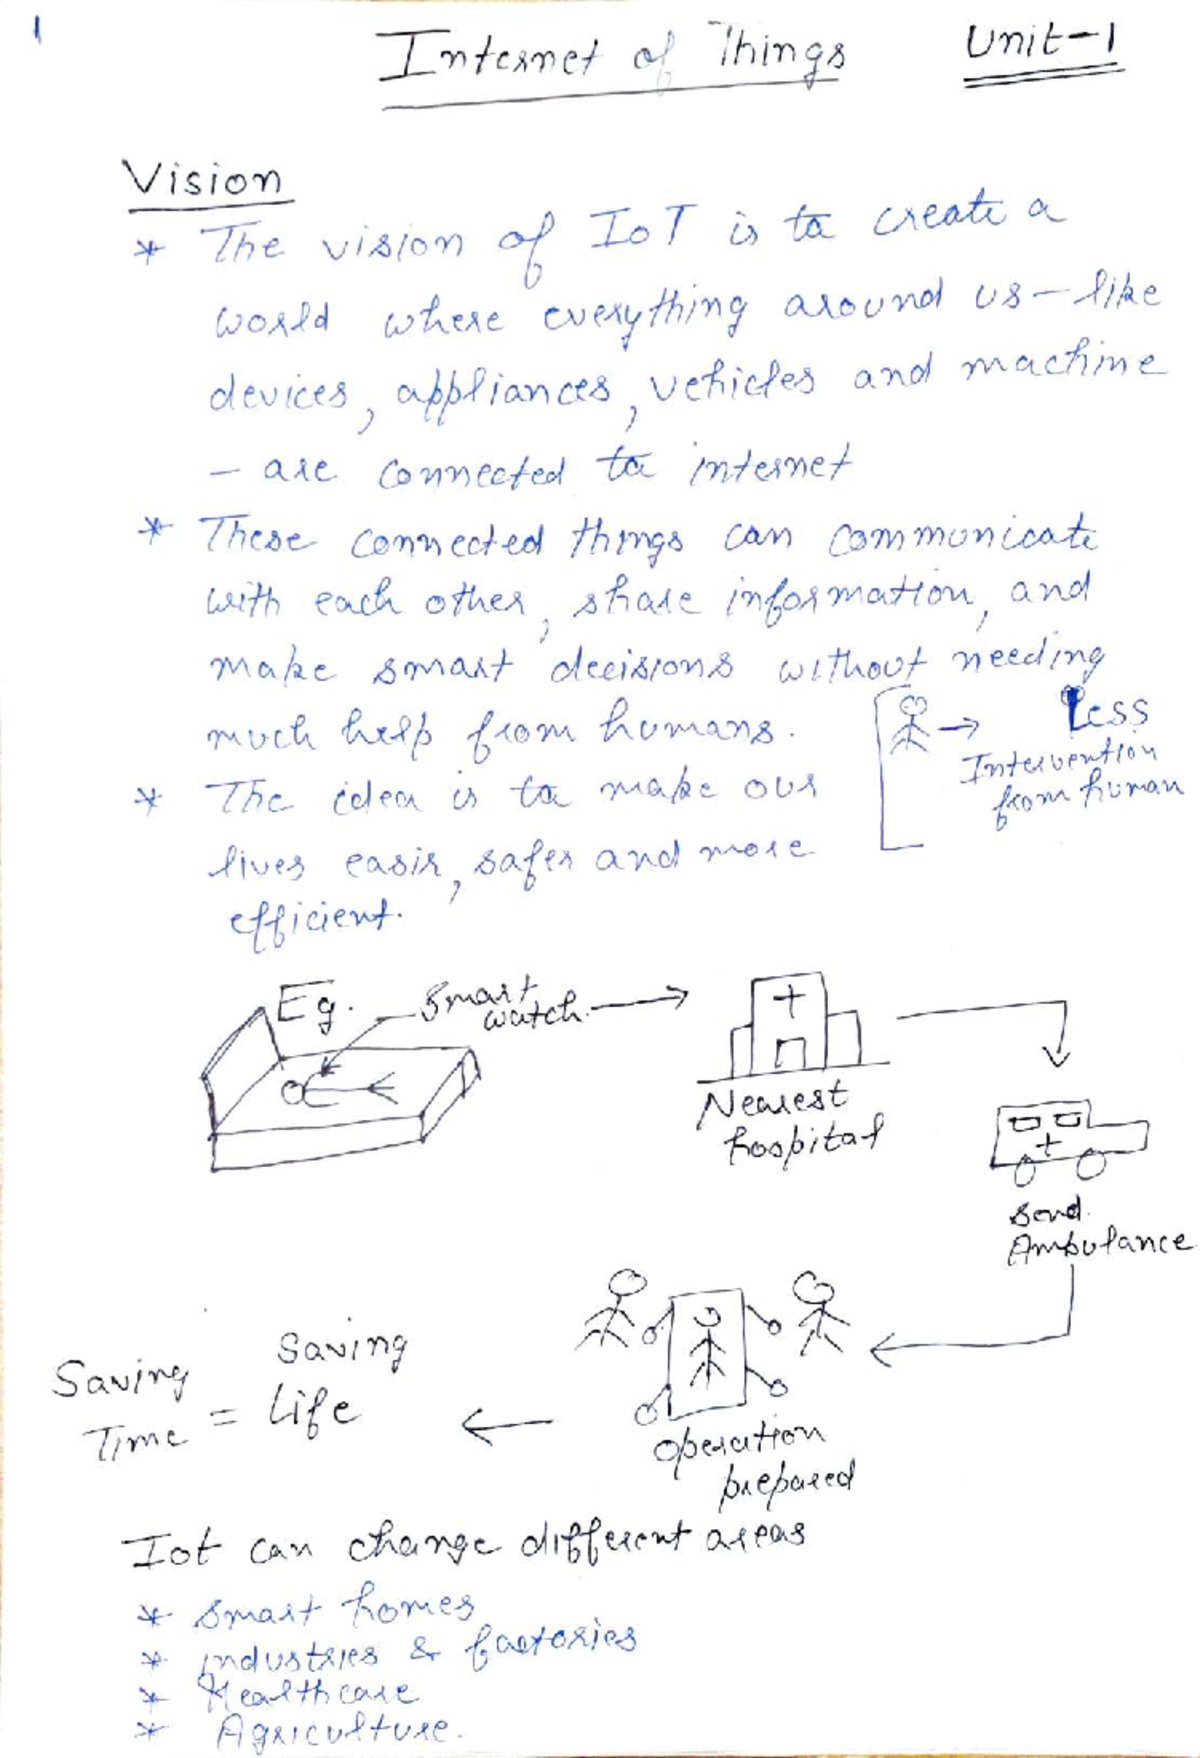 1
Internet of Things Unit-1
Vision
* The vision of IoT is to create a
world where everything around us - like
devices, appliances, vehicles and machine
- are connected to internet
* These connected things can communicate
with each other, share information, and
make smart decisions without needing
much help from humans.
→ Less
Intervention
from human
* The idea is to make our
lives easir, safer and more
efficient.
Eg.
Smart
watch
+
Nearest
hospital
+
Send
Ambulance
Operation
prepared
Saving
Time = Saving
Life
Iot can change different areas
* Smart homes
* industries & factories
* Healthcare
* Agriculture.